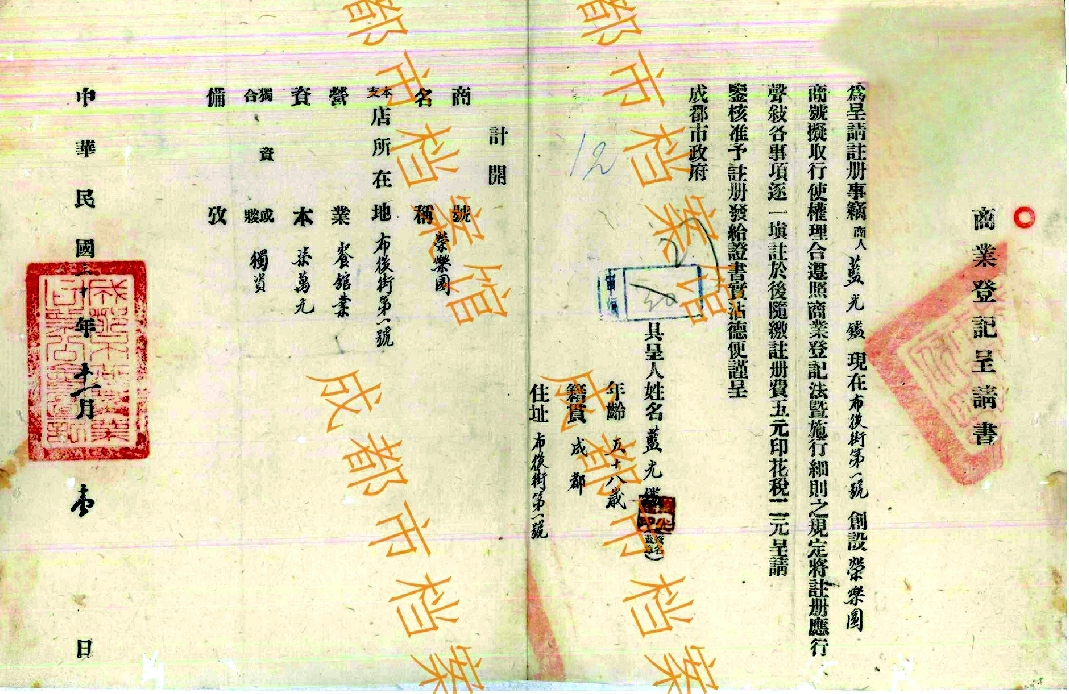 商業登記呈請書
為呈請註册事竊商人藍光鑑現在布後街第一號創設榮樂園
商號擬取行使權理合遵照商業登記法暨施行細則之規定將註册應行
聲敍各事項逐一填註於後隨繳註册費五元印花稅二元呈請
鑒核准予註册發給證書實沾德便謹呈
成都市政府
具呈人姓名藍光鑑
年齡五十八歲
籍貫成都
住址布後街第一號
12
計開
商號名稱榮樂園
本支店所在地布後街第一號
營業餐館業
資本柒萬元
獨資或合夥獨資
備攷
中華民國三十年十一月壹日
成都市檔案館
成都市檔案館
成都市檔案
成都市檔案